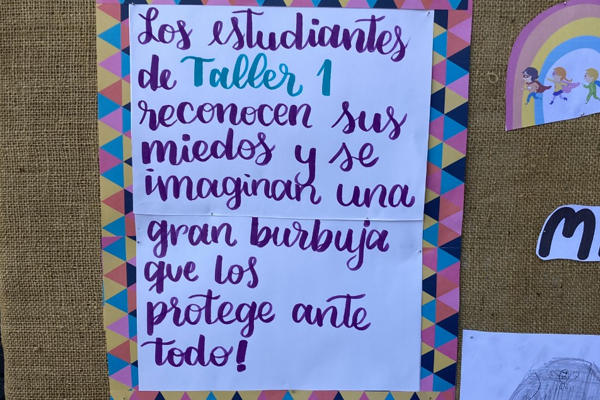 Los estudiantes
de Taller 1
reconocen sus
miedos y se
imaginan una
gran burbuja
que los
protege ante
todo!